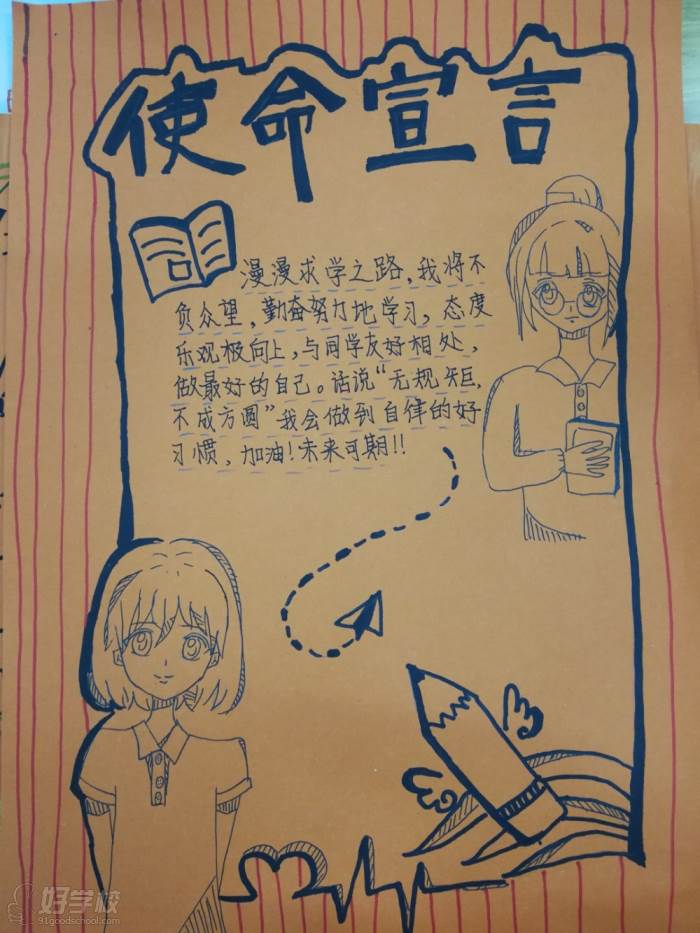 使命宣言
漫漫求学之路,我将不
负众望,勤奋努力地学习,态度
乐观极向上,与同学友好相处,
做最好的自己。话说“无规矩,
不成方圆”我会做到自律的好
习惯,加油!未来可期!!
好学校
91goodschool.com